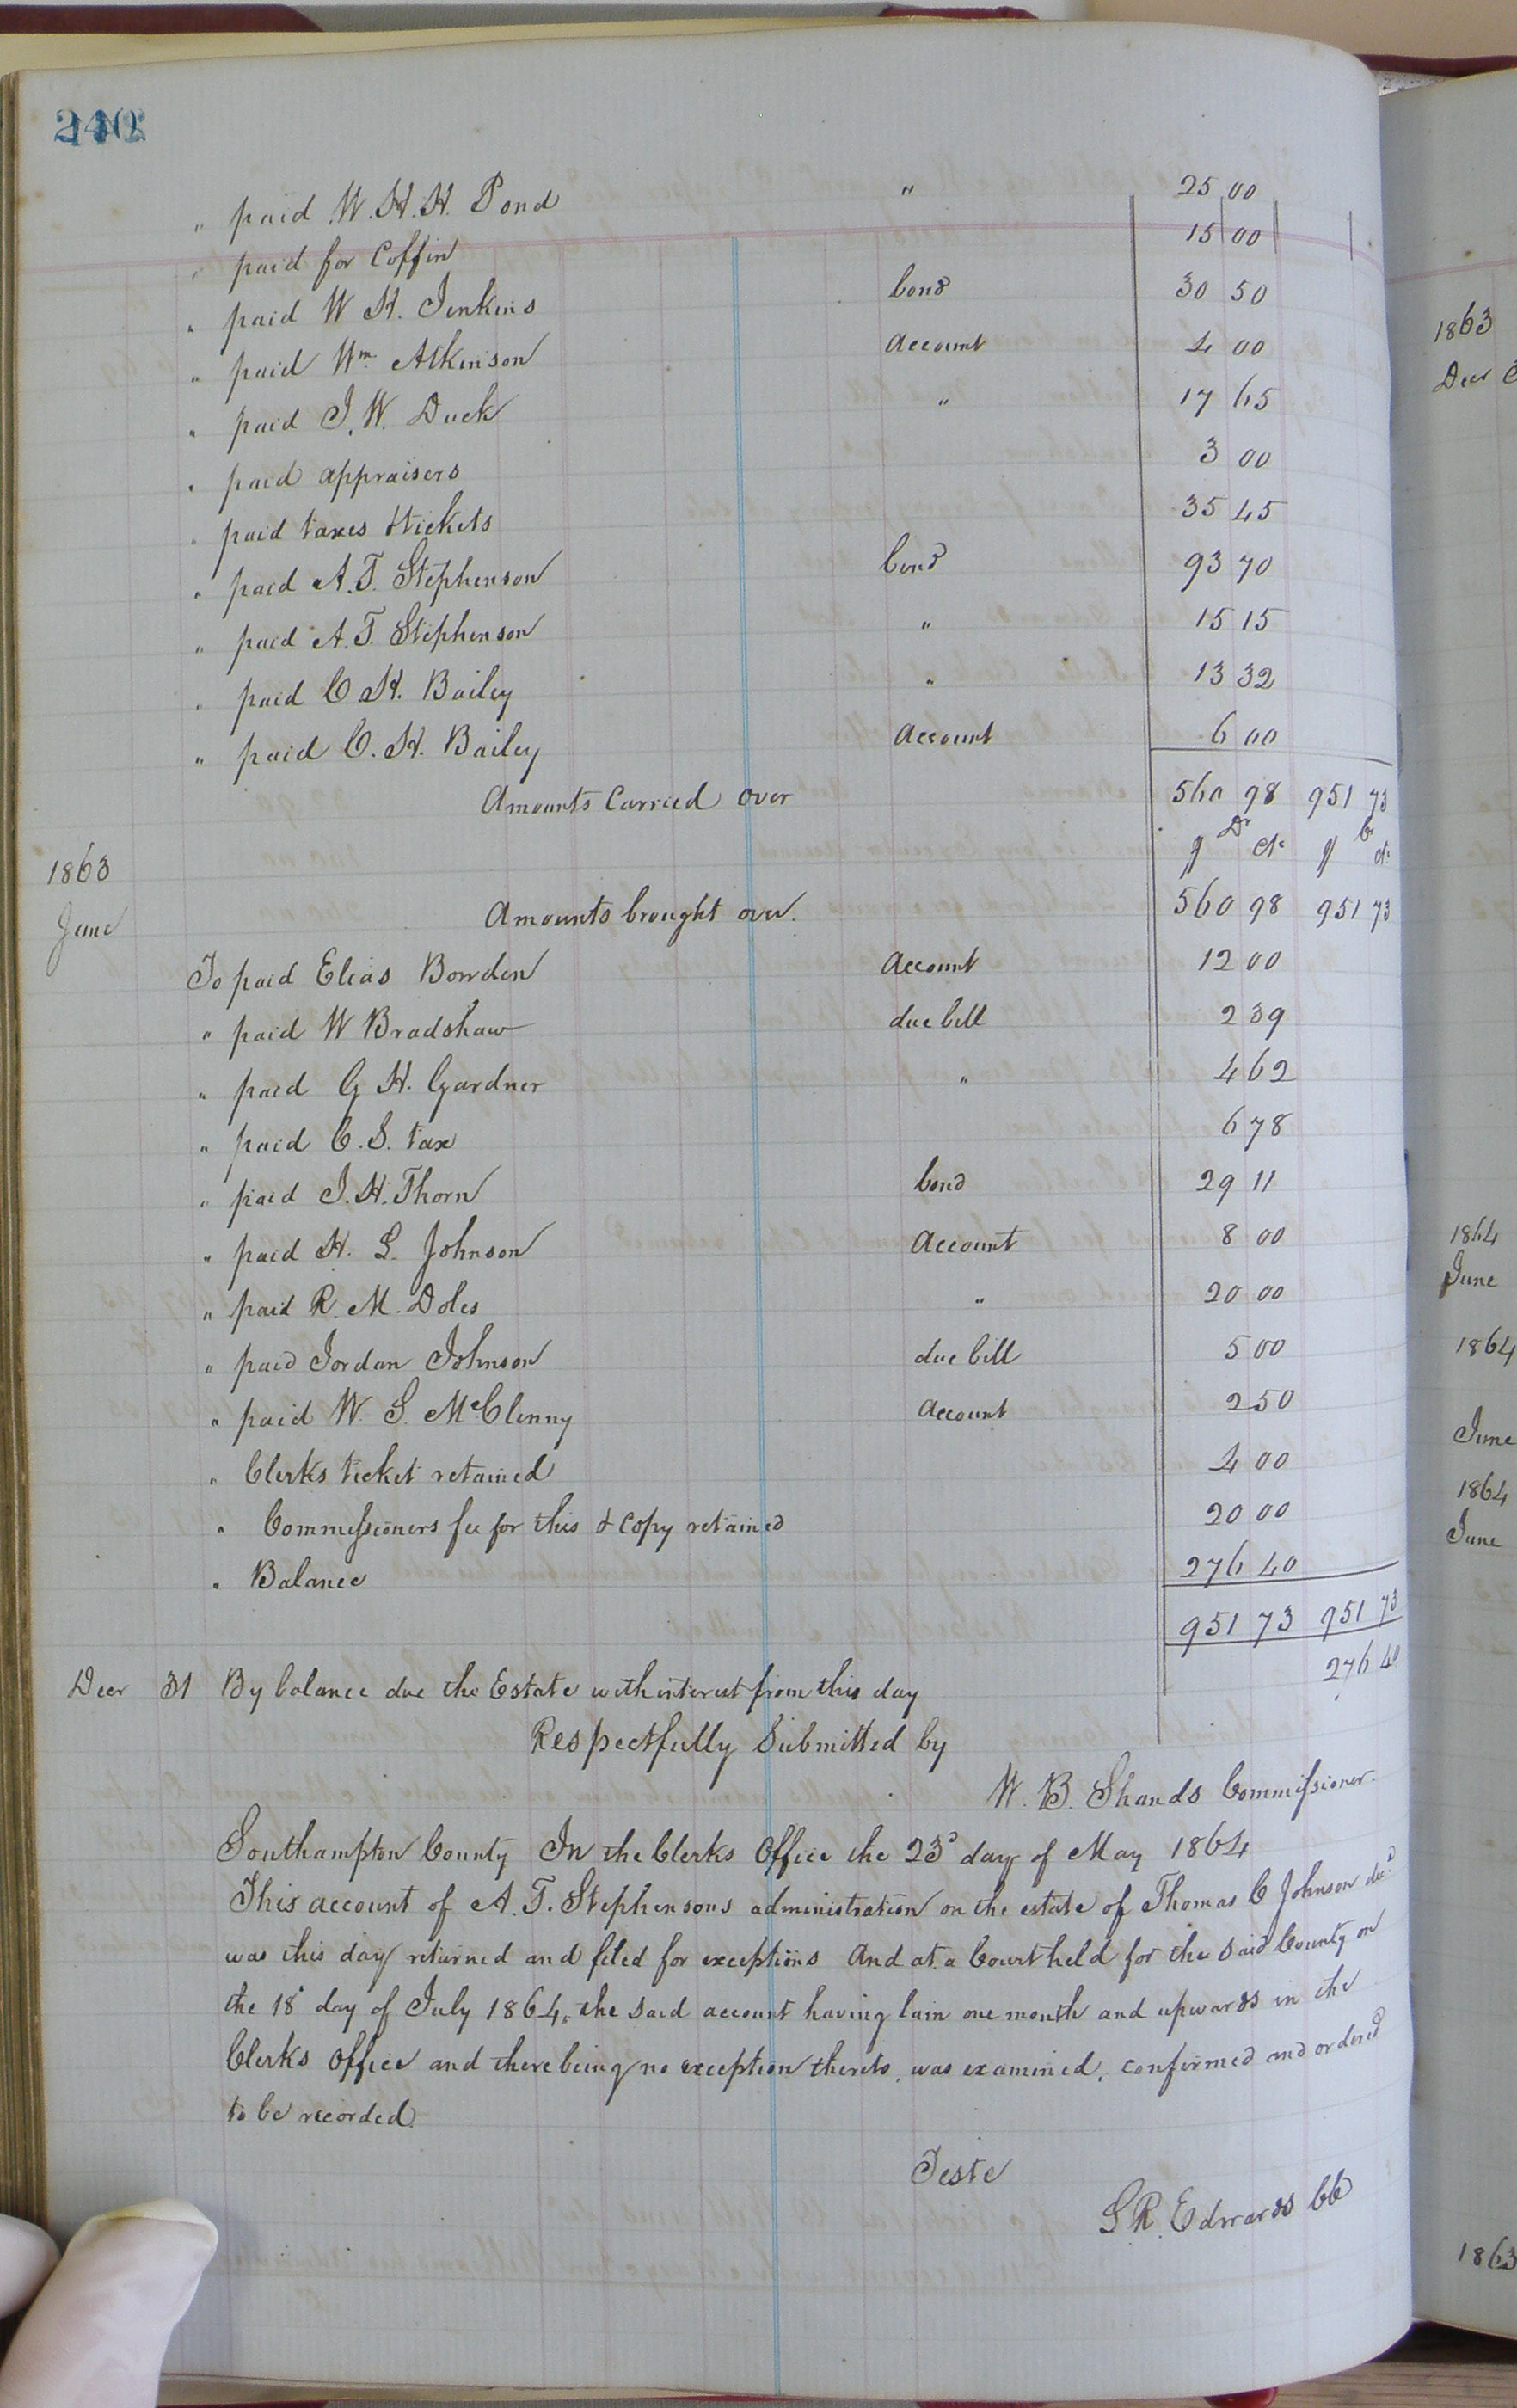 240
" paid W. H. H. Pond " 25 00
" paid for Coffin 15 00
" paid W H. Jenkins bond 30 50
" paid Wm. Atkinson Account 4 00
" paid J. W. Duck " 17 65
" paid appraisers 3 00
" paid taxes & tickets 35 45
" paid A. T. Stephenson bond 93 70
" paid A. T. Stephenson " 15 15
" paid C. H. Bailey " 13 32
" paid C. H. Bailey Account 6 00
Amounts Carried over 560 98 951 73
$ Dr cts $ Cr cts
1863
June Amounts brought over. 560 98 951 73
To paid Elias Bowden Account 12 00
" paid W Bradshaw due bill 2 39
" paid G H. Gardner " 4 62
" paid C. S. tax 6 78
" paid J. H. Thorn bond 29 11
" paid H. L. Johnson Account 8 00
" paid R. M. Doles " 20 00
" paid Jordan Johnson due bill 5 00
" paid W. S. McClenny Account 2 50
" Clerks ticket retained 4 00
" Commissioners fee for this & Copy retained 20 00
" Balance 276 40
951 73 951 73
Decr 31 By balance due the Estate with interest from this day 276 40
Respectfully Submitted by
W. B. Shands Commissioner.
Southampton County In the Clerks Office the 23d day of May 1864
This account of A. T. Stephensons administration on the estate of Thomas C Johnson decd
was this day returned and filed for exceptions And at a Court held for the said County on
the 18 day of July 1864, the said account having lain one month and upwards in the
Clerks Office and there being no exception thereto, was examined, confirmed and ordered
to be recorded.
Teste
L R. Edwards CC
1863
Decr
1864
June
1864
June
1864
June
1863